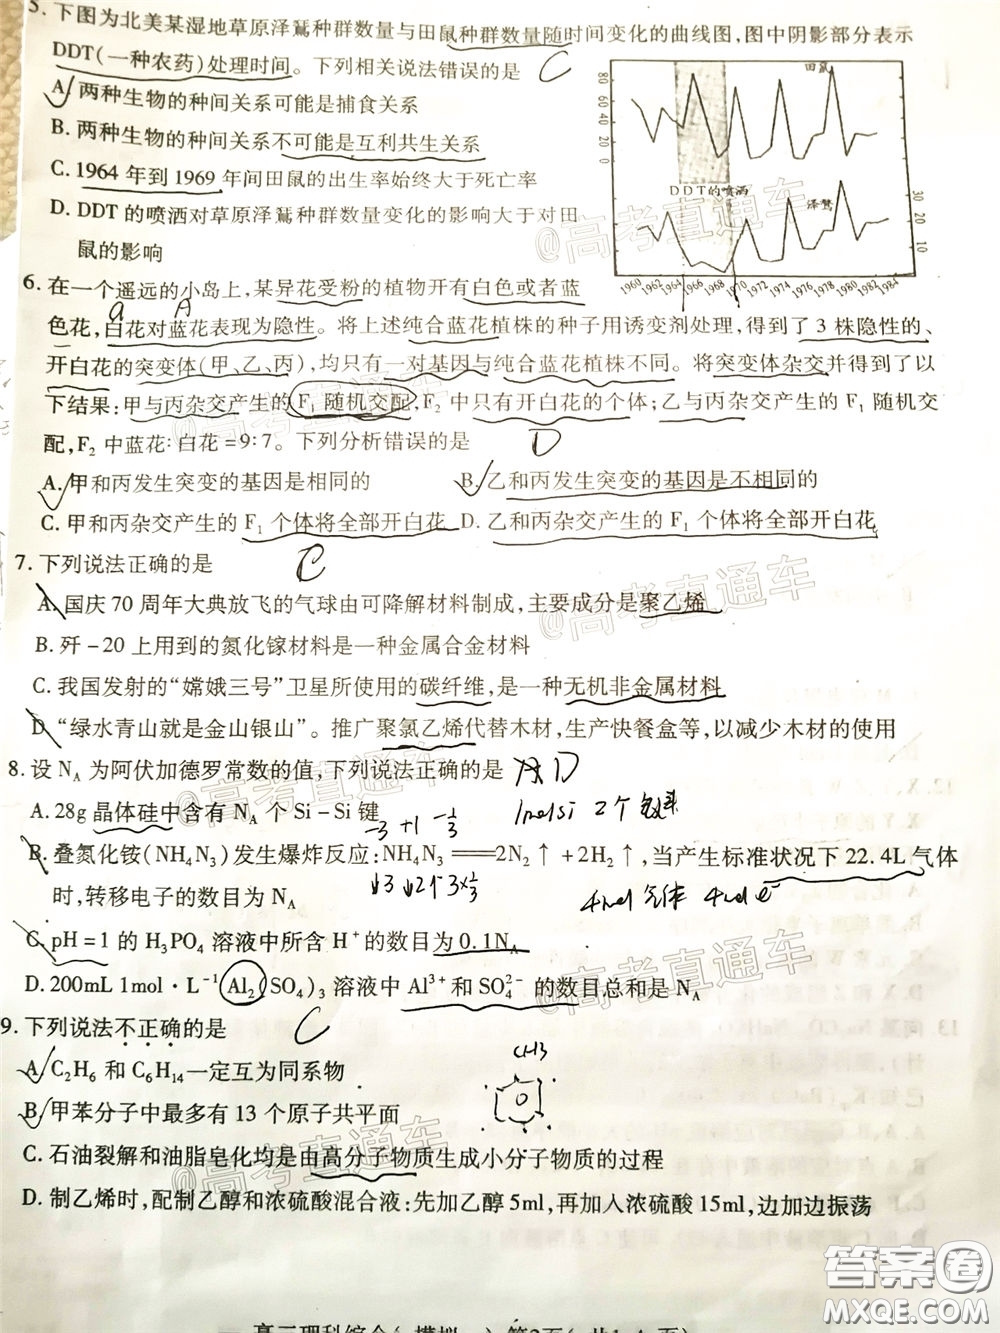 5. 下图为北美某湿地草原泽鵟种群数量与田鼠种群数量随时间变化的曲线图,图中阴影部分表示
DDT(一种农药)处理时间。下列相关说法错误的是 C
A. 两种生物的种间关系可能是捕食关系
B. 两种生物的种间关系不可能是互利共生关系
C. 1964年到1969年间田鼠的出生率始终大于死亡率
D. DDT的喷洒对草原泽鵟种群数量变化的影响大于对田
鼠的影响
田鼠
80
60
40
20
0
DDT的喷洒
泽鵟
30
20
10
1960 1962 1964 1966 1968 1970 1972 1974 1976 1978 1980 1982 1984
6. 在一个遥远的小岛上,某异花受粉的植物开有白色或者蓝
a A
色花,白花对蓝花表现为隐性。将上述纯合蓝花植株的种子用诱变剂处理,得到了3株隐性的、
开白花的突变体(甲、乙、丙),均只有一对基因与纯合蓝花植株不同。将突变体杂交并得到了以
下结果:甲与丙杂交产生的F₁随机交配,F₂中只有开白花的个体;乙与丙杂交产生的F₁随机交
配,F₂中蓝花:白花=9:7。下列分析错误的是 D
A. 甲和丙发生突变的基因是相同的 B. 乙和丙发生突变的基因是不相同的
C. 甲和丙杂交产生的F₁个体将全部开白花 D. 乙和丙杂交产生的F₁个体将全部开白花
7. 下列说法正确的是 C
A. 国庆70周年大典放飞的气球由可降解材料制成,主要成分是聚乙烯
B. 歼-20上用到的氮化镓材料是一种金属合金材料
C. 我国发射的“嫦娥三号”卫星所使用的碳纤维,是一种无机非金属材料
D. “绿水青山就是金山银山”。推广聚氯乙烯代替木材,生产快餐盒等,以减少木材的使用
8. 设N_A为阿伏加德罗常数的值,下列说法正确的是 D
A. 28g晶体硅中含有N_A个Si-Si键 1molSi 2个键
-3 +1 -1/3
B. 叠氮化铵(NH₄N₃)发生爆炸反应:NH₄N₃═2N₂↑+2H₂↑,当产生标准状况下22.4L气体
时,转移电子的数目为N_A 4mol气体 4mol e⁻
C. pH=1的H₃PO₄溶液中所含H⁺的数目为0.1N_A
D. 200mL 1mol·L⁻¹Al₂(SO₄)₃溶液中Al³⁺和SO₄²⁻的数目总和是N_A
9. 下列说法不正确的是 C
CH3
A. C₂H₆和C₆H₁₄一定互为同系物
B. 甲苯分子中最多有13个原子共平面
C. 石油裂解和油脂皂化均是由高分子物质生成小分子物质的过程
D. 制乙烯时,配制乙醇和浓硫酸混合液:先加乙醇5ml,再加入浓硫酸15ml,边加边振荡
@高考直通车
@高考直通车
@高考直通车
@高考直通车
@高考直通车
@高考直通车
@高考直通车
答案圈
MXQE.COM